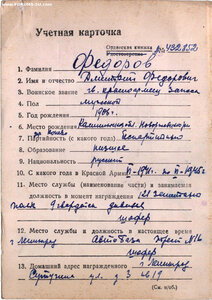 Учетная карточка
Орденская книжка
Удостоверение № 432152
1. Фамилия Федоров
2. Имя и отчество Дмитрий Федорович
3. Воинское звание гв. красноармеец запаса
4. Пол мужской
5. Год рождения 1906 г.
6. Место рождения
7. Партийность (с какого года) беспартийный
8. Образование низшее
9. Национальность русский
10. С какого года в Красной Армии
11. Место службы (наименование части) и занимаемая
должность в момент награждения
полк гвардейск. дивизии
шофер
12. Место службы и должность в настоящее время
г. Ленинград Автобаза №16
шофер
13. Домашний адрес награжденного г. Ленинград
ул. д. 3 кв 19
(См. н/об.)